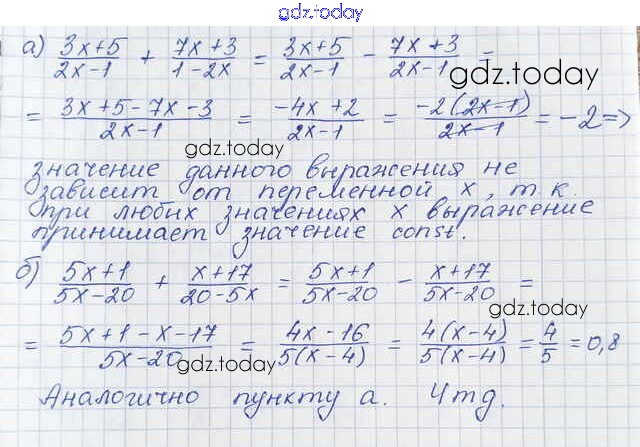 gdz.today
а) (3x+5)/(2x-1) + (7x+3)/(1-2x) = (3x+5)/(2x-1) - (7x+3)/(2x-1) =
gdz.today
= (3x+5-7x-3)/(2x-1) = (-4x+2)/(2x-1) = (-2(2x-1))/(2x-1) = -2 =>
gdz.today
значение данного выражения не
зависит от переменной x, т.к.
при любых значениях x выражение
принимает значение const.
gdz.today
б) (5x+1)/(5x-20) + (x+17)/(20-5x) = (5x+1)/(5x-20) - (x+17)/(5x-20) =
gdz.today
= (5x+1-x-17)/(5x-20) = (4x-16)/(5(x-4)) = (4(x-4))/(5(x-4)) = 4/5 = 0,8
gdz.today
gdz.today
Аналогично пункту а. Чтд.